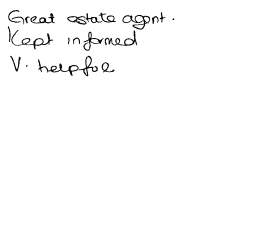 Great estate agent.
Kept informed
V. helpful